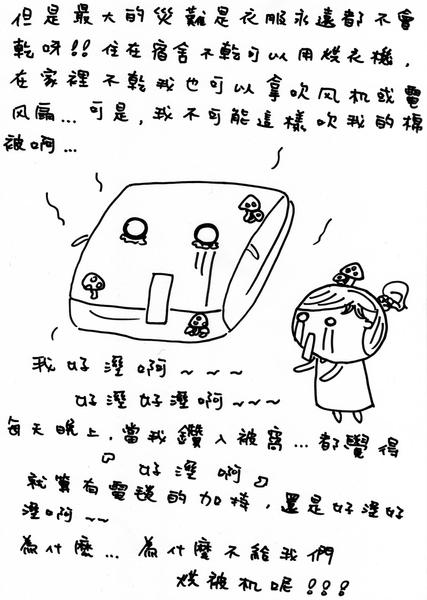 但是最大的災難是衣服永遠都不會
乾呀!! 住在宿舍不乾可以用烘衣機,
在家裡不乾我也可以拿吹风机或電
风扇... 可是, 我不可能這樣吹我的棉
被啊...
我好溼啊~~~~
好溼好溼啊~~~
每天晚上, 當我鑽入被窩... 都覺得
『好溼啊』
就算有電毯的加持, 還是好溼好
溼啊~~
為什麼... 為什麼不給我們
烘被机呢!!!